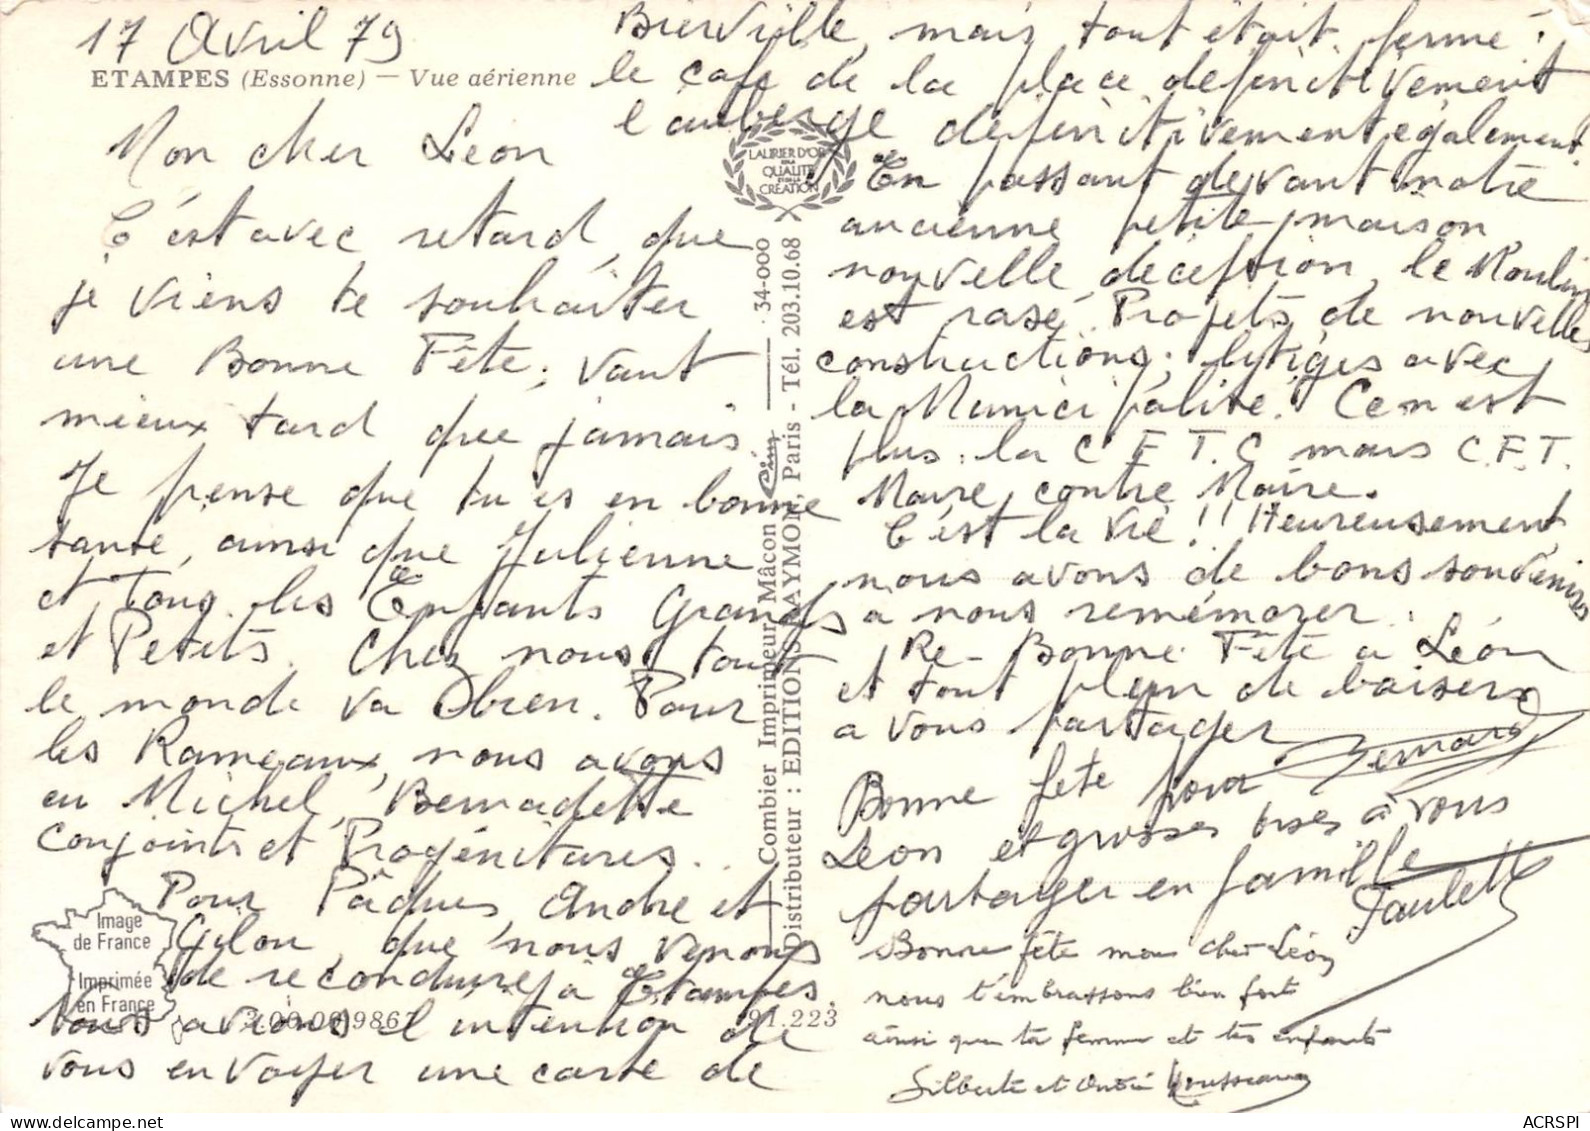 17 Avril 79
ETAMPES (Essonne) — Vue aérienne
Mon cher Léon
C'est avec retard que
je viens te souhaiter
une Bonne Fête ; vaut
mieux tard que jamais.
Je pense que tu es en bonne
santé, ainsi que Julienne
et Tous les Enfants Grands
et Petits. Chez nous tout
le monde va bien. Pour
les Rameaux, nous avons
eu Michel, Bernadette
conjoints et Progénitures...
Pour Pâques, André et
que nous venons
de reconduire à Etampes.
Nous avions l'intention de
vous envoyer une carte de
Bierville, mais tout était fermé :
le café de la place définitivement
l'auberge définitivement également.
En passant devant notre
ancienne petite maison
nouvelle déception, le Moulin
est rasé. Projets de nouvelles
constructions ; litiges avec
la Municipalité. Ce n'est
plus la C.F.T.C mais C.F.T.
Maire contre Maire.
C'est la vie !! Heureusement
nous avons de bons souvenirs
à nous remémorer.
Re-Bonne Fête à Léon
et tout plein de baisers
à vous partager
Bernard
Bonne fête pour
Léon et grosses bises à vous
partager en famille
Paulette
Bonne fête mon cher Léon
nous t'embrassons bien fort
ainsi que ta femme et tes enfants
Gilberte et André Rousseau
LAURIER D'OR
DE LA
QUALITÉ
ET DE LA
CRÉATION
Combier Imprimeur Mâcon Cim 34-000
Distributeur : EDITIONS RAYMON, Paris - Tél. 203.10.68
Image
de France
Imprimée
en France
91.223
ACRSPI